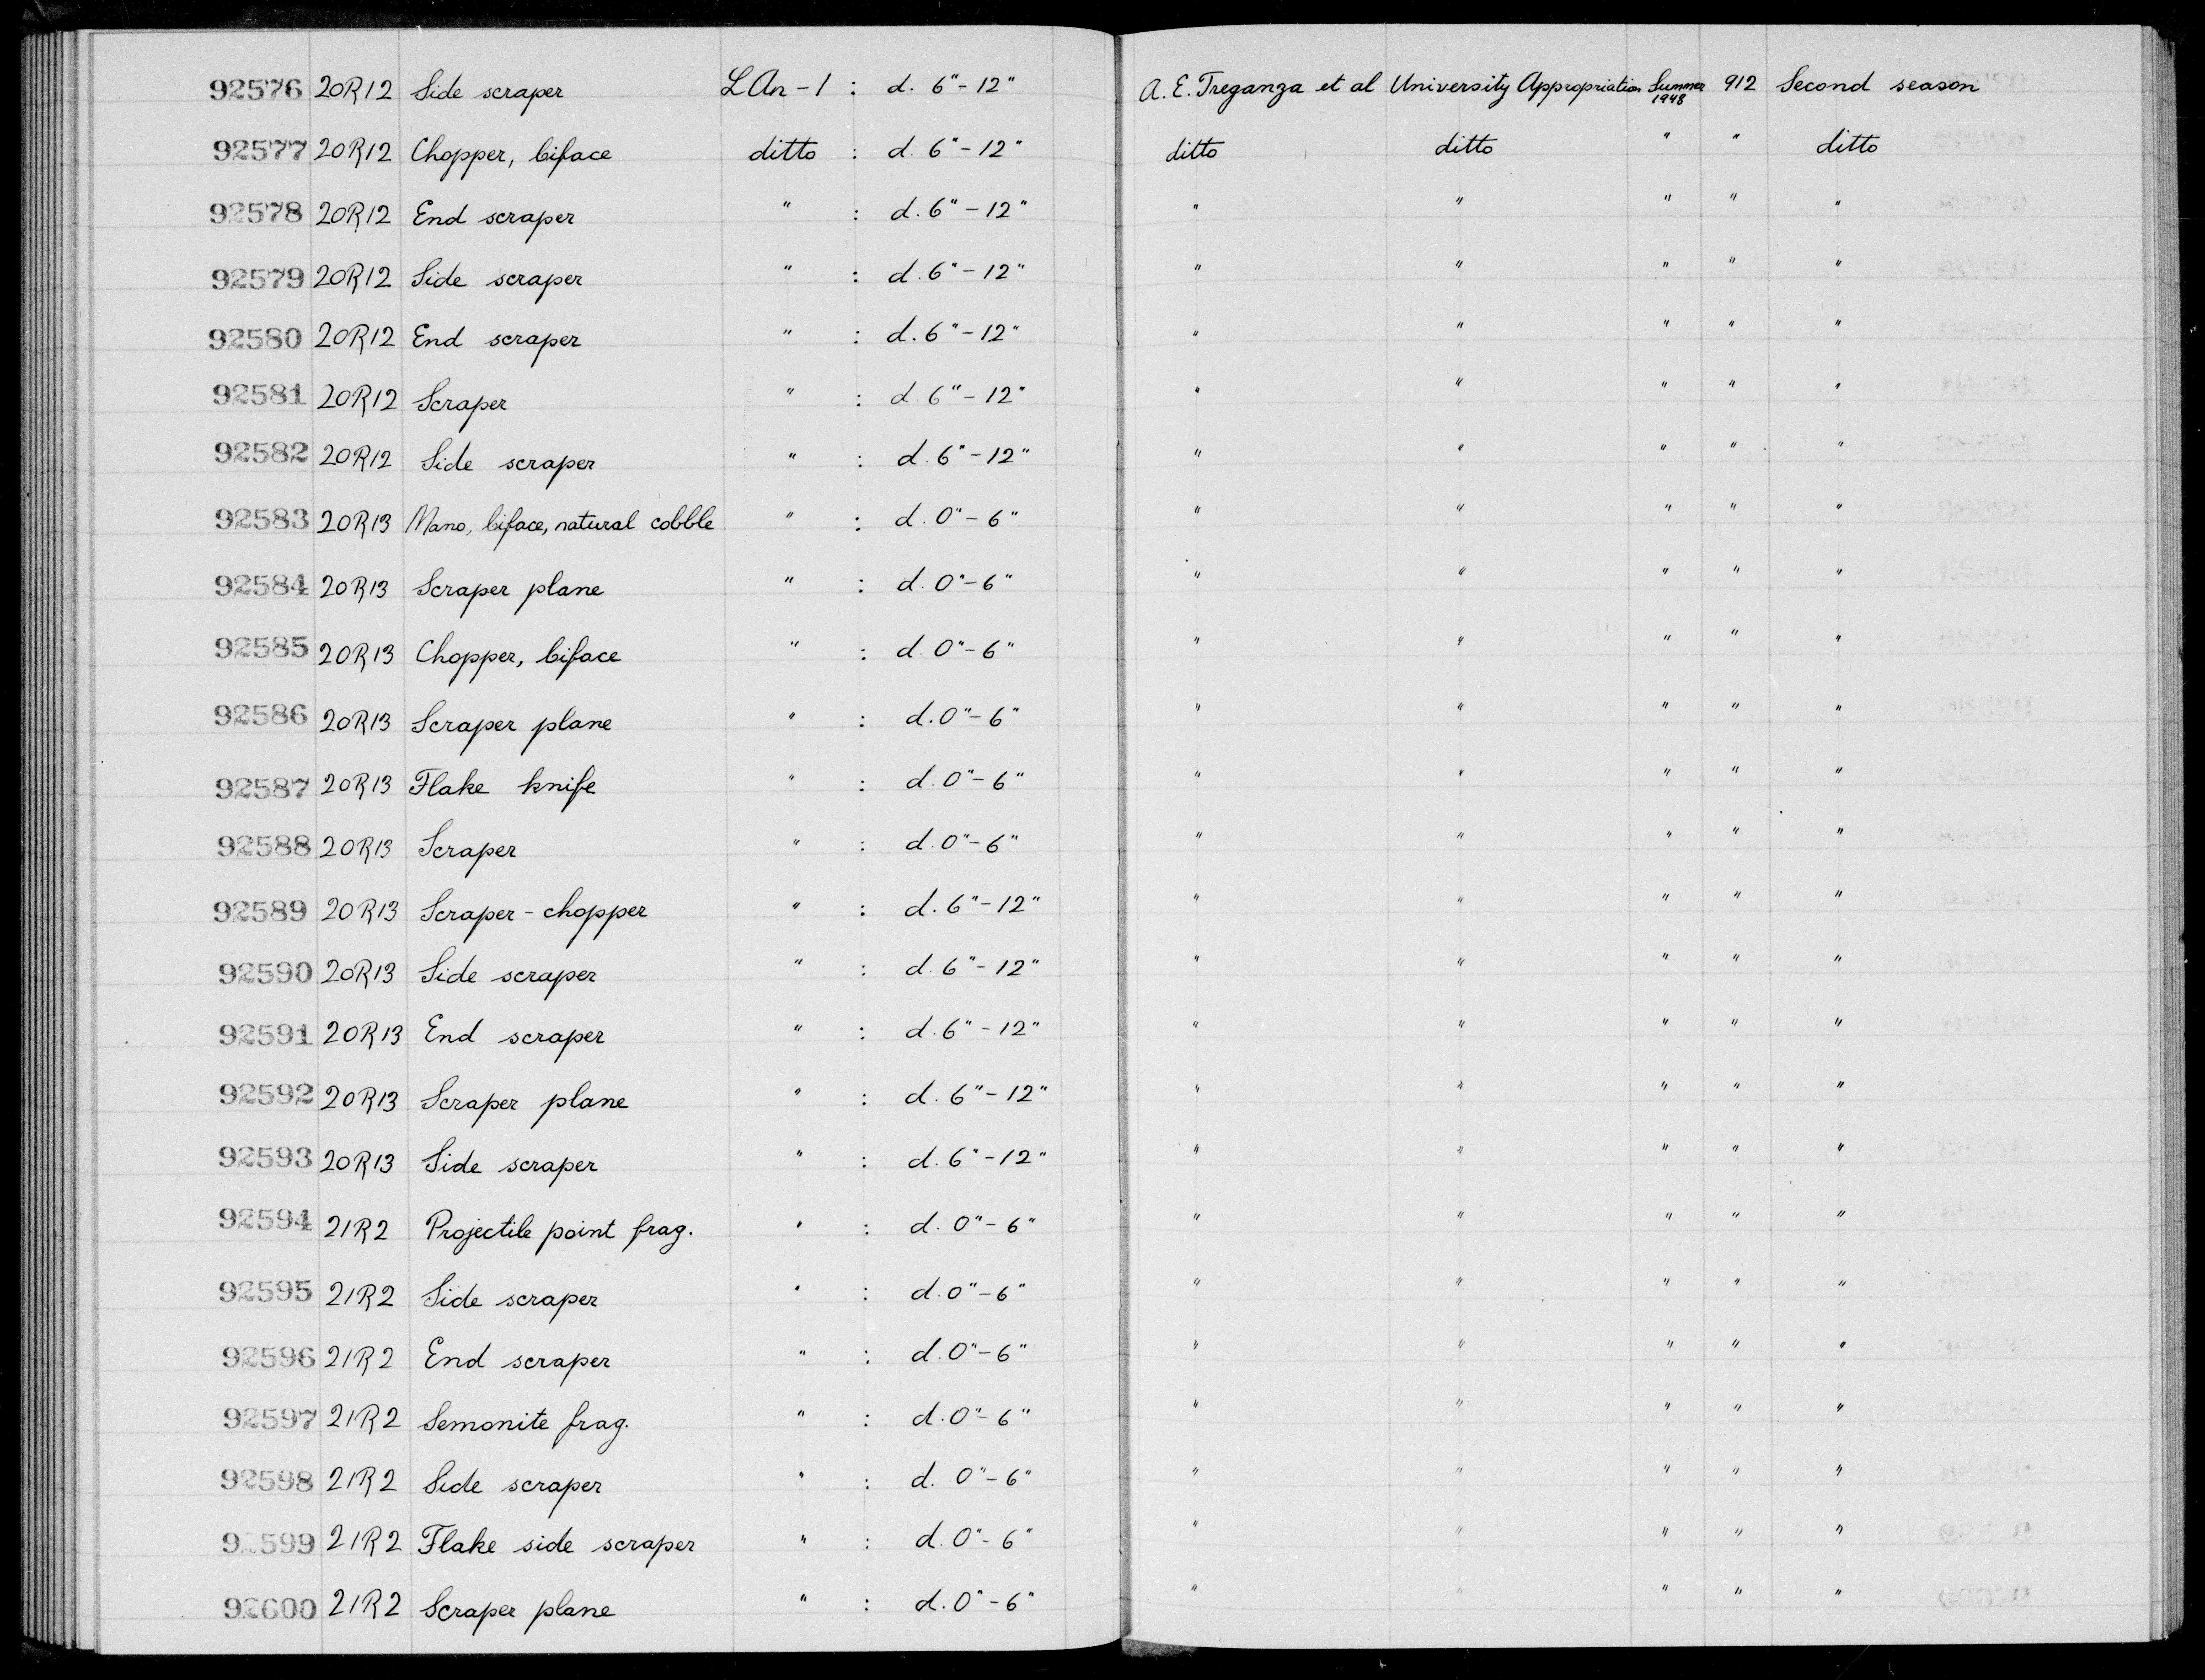 92576 20R12 Side scraper LAn-1 : d. 6"-12" A. E. Treganza et al University Appropriation Summer 1948 912 Second season
92577 20R12 Chopper, biface ditto : d. 6"-12" ditto ditto " " ditto
92578 20R12 End scraper " : d. 6"-12" " " " " "
92579 20R12 Side scraper " : d. 6"-12" " " " " "
92580 20R12 End scraper " : d. 6"-12" " " " " "
92581 20R12 Scraper " : d. 6"-12" " " " " "
92582 20R12 Side scraper " : d. 6"-12" " " " " "
92583 20R13 Mano, biface, natural cobble " : d. 0"-6" " " " " "
92584 20R13 Scraper plane " : d. 0"-6" " " " " "
92585 20R13 Chopper, biface " : d. 0"-6" " " " " "
92586 20R13 Scraper plane " : d. 0"-6" " " " " "
92587 20R13 Flake knife " : d. 0"-6" " " " " "
92588 20R13 Scraper " : d. 0"-6" " " " " "
92589 20R13 Scraper-chopper " : d. 6"-12" " " " " "
92590 20R13 Side scraper " : d. 6"-12" " " " " "
92591 20R13 End scraper " : d. 6"-12" " " " " "
92592 20R13 Scraper plane " : d. 6"-12" " " " " "
92593 20R13 Side scraper " : d. 6"-12" " " " " "
92594 21R2 Projectile point frag. " : d. 0"-6" " " " " "
92595 21R2 Side scraper " : d. 0"-6" " " " " "
92596 21R2 End scraper " : d. 0"-6" " " " " "
92597 21R2 Semonite frag. " : d. 0"-6" " " " " "
92598 21R2 Side scraper " : d. 0"-6" " " " " "
92599 21R2 Flake side scraper " : d. 0"-6" " " " " "
92600 21R2 Scraper plane " : d. 0"-6" " " " " "